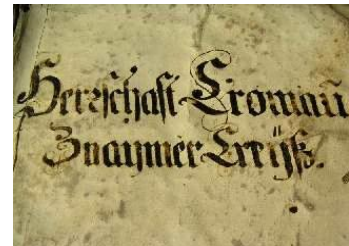 Herrschaft Cromau̅
Znaymer Creÿß.